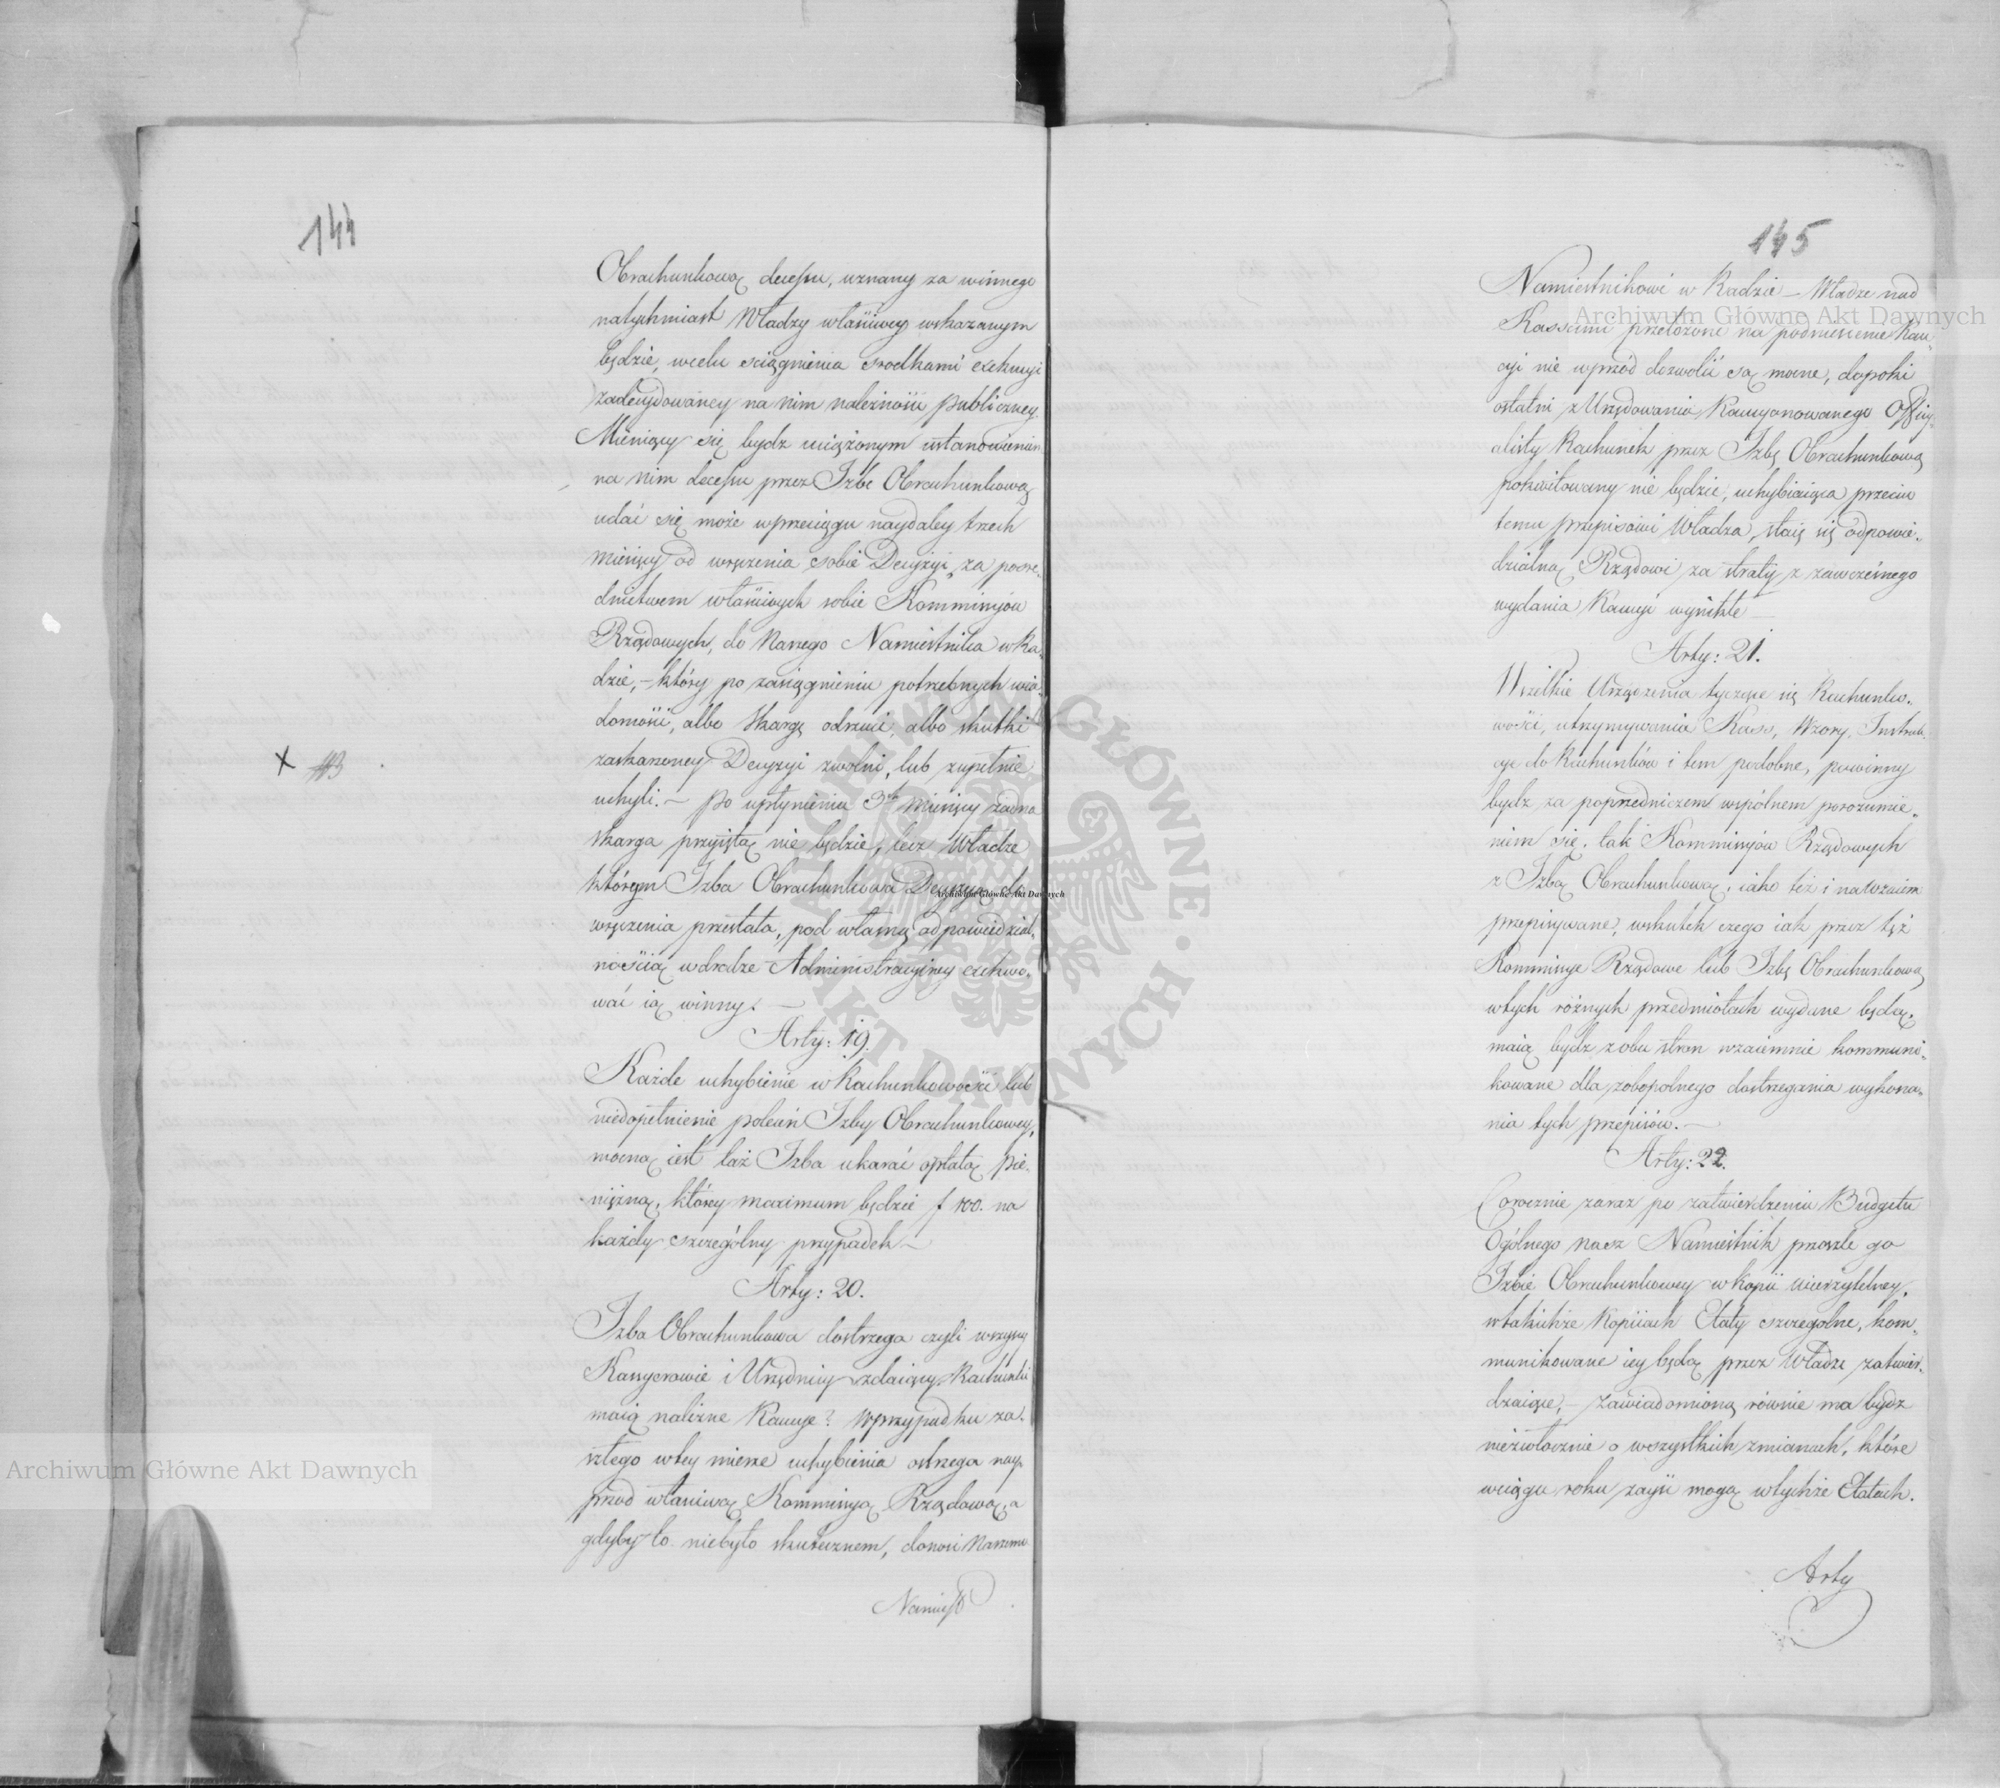 144
Obrachunkową decessu, uznany za winnego
natychmiast Władzy właściwey wskazanym
będzie, wcelu sciągnienia srodkami exekucyi
zadecydowaney na nim należności publiczney.
Mieniący się bydz uciążonym ustanowieniem
na nim decessu przez Izbe Obrachunkową
udać się może wprzeciągu naydaley trzech
miesięcy od wręczenia sobie Decyzyi, za posre-
dnictwem właściwych sobie Kommissyów
Rządowych, do Naszego Namiestnika w Ra-
dzie, – który po zasiągnieniu potrzebnych wia-
domości, albo skargę odrzuci, albo skutki
zaskarżoney Decyzyi zwolni, lub zupełnie
uchyli. – Po upłynieniu 3ch miesięcy żadna
skarga przyiętą nie będzie, lecz Władze
którym Izba Obrachunkowa Decyzyą do
wręczenia przesłała, pod własną odpowiedzial-
nością wdrodze Administracyiney exekwo-
wać ią winny. –
Arty: 19.
Każde uchybienie w Rachunkowości lub
niedopełnienie poleceń Izby Obrachunkowey,
mocną iest taż Izba ukarać opłatą pie-
niężną, którey maximum będzie f 100. na
każdy szczególny przypadek –
Arty: 20.
Izba Obrachunkowa dostrzega czyli wszyscy
Kassyerowie i Urzędnicy zdaiący Rachunki
maią należne Kaucye? Wprzypadku za-
szłego wtey mierze uchybienia ostrzega nay-
przod właściwą Kommissyą Rządową, a
gdyby to niebyło skutecznem, donosi Naszemu
Namiest
X 113
145
Namiestnikowi w Radzie – Władze nad
Kassami przełożone na podniesienie Kau-
cyi nie wprzód dozwolić są mocne, dopoki
ostatni z Urzędowania Kaucyonowanego Offcy-
alisty Rachunek przez Izbę Obrachunkową
pokwitowany nie będzie, uchybiaiąca przeciw
temu przepisowi Władza, staie się odpowie-
dzialną Rządowi za straty z zawczesnego
wydania Kaucyi wynikłe –
Arty: 21.
Wszelkie Urządzenia tyczące się Rachunko-
wości, utrzymywania Kass, Wzory, Instruk-
cye do Rachunków i tem podobne, powinny
bydz za poprzedniczem wspólnem porozumie-
niem się, tak Kommissyów Rządowych
z Izbą Obrachunkową, iako też i nawzaiem
przepisywane, wskutek czego iak przez też
Kommissye Rządowe lub Izbę Obrachunkową
wtych różnych przedmiotach wydane będą,
maią bydz z obu stron wzaiemnie kommuni-
kowane dla zobopolnego dostrzegania wykona-
nia tych przepisów. –
Arty: 22.
Corocznie zaraz po zatwierdzeniu Budgetu
Ogólnego nasz Namiestnik przeszle go
Izbie Obrachunkowey w kopii wierzytelney,
wtakichże kopiiach Etaty szczegolne, kom-
munikowane iey będą przez Władze zatwier-
dzaiące, – zawiadomioną równie ma bydz
niezwłocznie o wszystkich zmianach, które
wciągu roku zayść mogą wtychże Etatach.
Arty
Archiwum Główne Akt Dawnych
Archiwum Główne Akt Dawnych
Archiwum Główne Akt Dawnych
ARCHIWUM GŁÓWNE AKT DAWNYCH